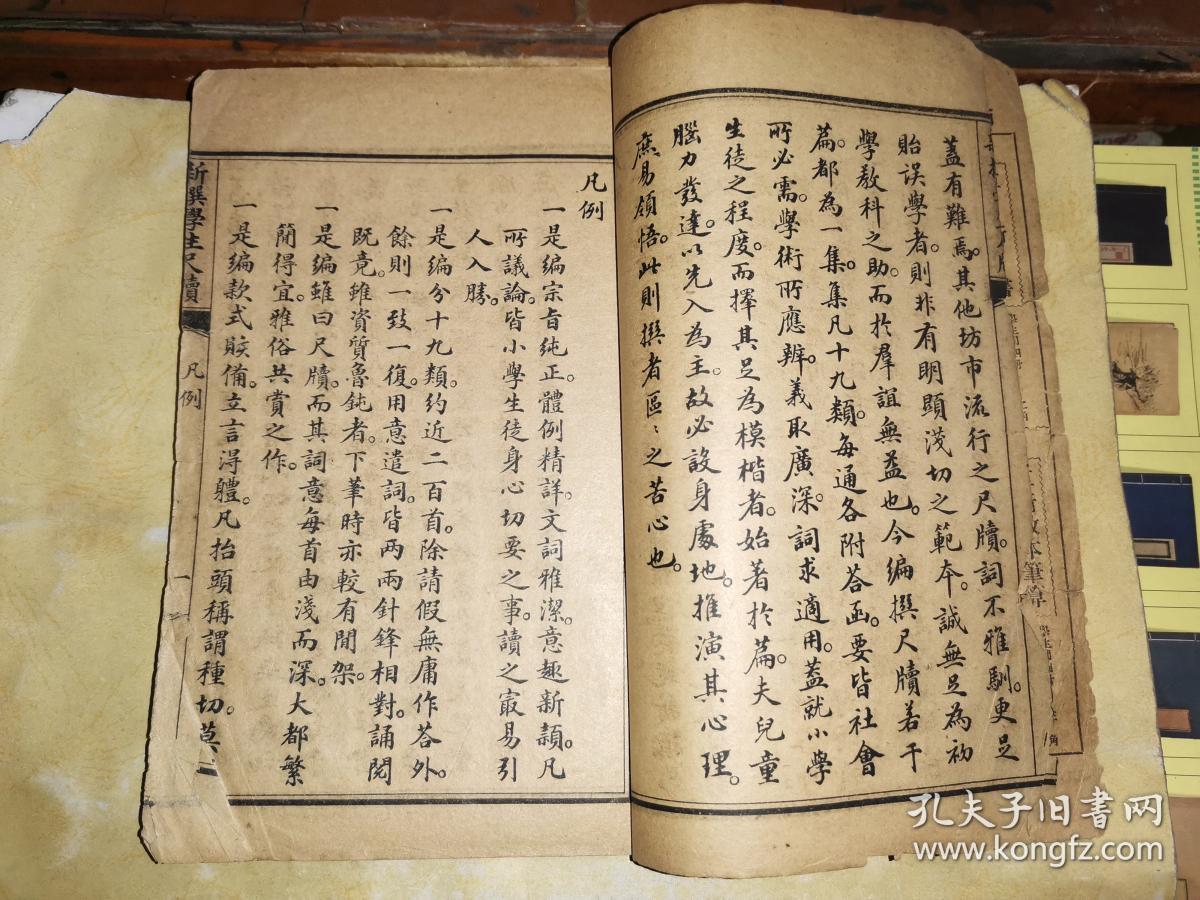 蓋有難焉。其他坊市流行之尺牘。詞不雅馴。更足
貽誤學者。則非有明顯淺切之範本。誠無足為初
學教科之助。而於羣誼無益也。今編撰尺牘若干
篇。都為一集。集凡十九類。每通各附荅函。要皆社會
所必需。學術所應辨。義取廣深。詞求適用。蓋就小學
生徒之程度。而擇其足為模楷者。始著於篇。夫兒童
腦力發達。以先入為主。故必設身處地。推演其心理。
庶易領悟。此則撰者區〻之苦心也。
凡例
一是編宗旨純正。體例精詳。文詞雅潔。意趣新穎。凡
所議論。皆小學生徒身心切要之事。讀之寂易引
人入勝。
一是編分十九類。約近二百首。除請假無庸作荅外。
餘則一致一復。用意遣詞。皆兩兩針鋒相對。誦閱
既竟。雖資質魯鈍者。下筆時亦較有間架。
一是編雖曰尺牘。而其詞意每首由淺而深。大都繁
簡得宜。雅俗共賞之作。
一是編款式賅備。立言得體。凡抬頭稱謂種切。莫
新撰學生尺牘
凡例
一
孔夫子旧书网
www.kongfz.com